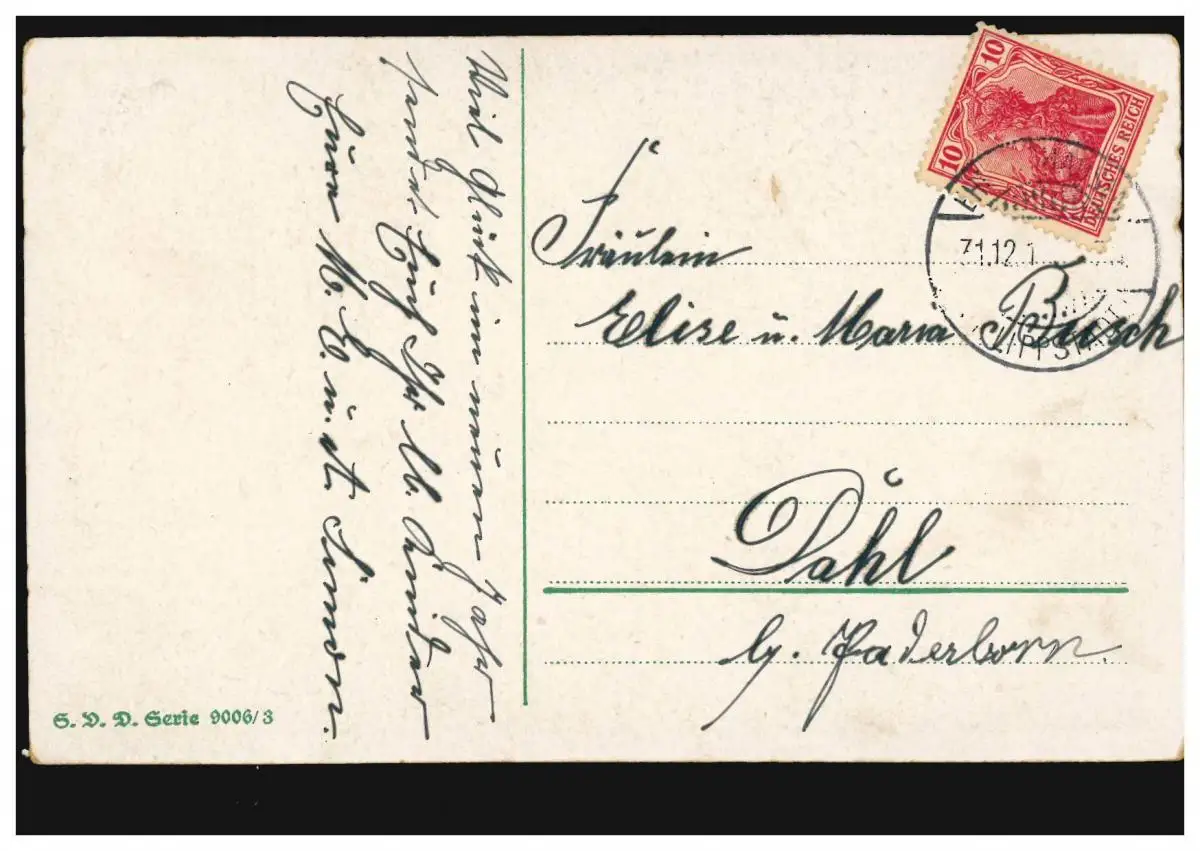 Viel Glück im neuen Jahr
sendet Euch Ihr lb. Kinder
Eure M. E. u. A. Simon.
Fräulein
Elise u. Maria Busch
Dahl
by. Paderborn.
10
10
DEUTSCHES REICH
31.12.1
LIPPSTADT
S. V. D. Serie 9006/3